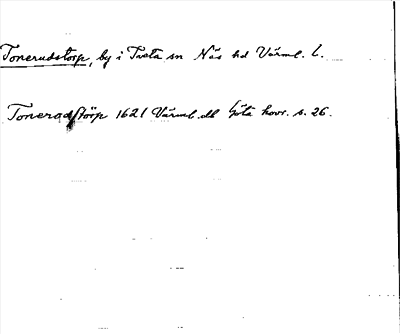 Tonerudstorp, by i Tveta sn Näs hd Värml. l.
Toneradstörp 1621 Värml. db Göta hovr. s. 26.